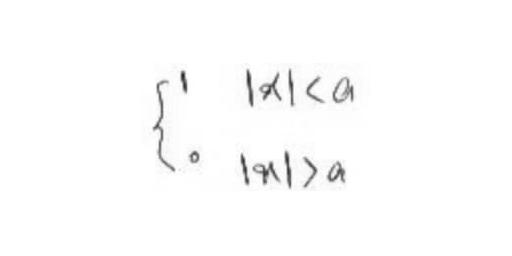 { 1 |x| < a
0 |x| > a